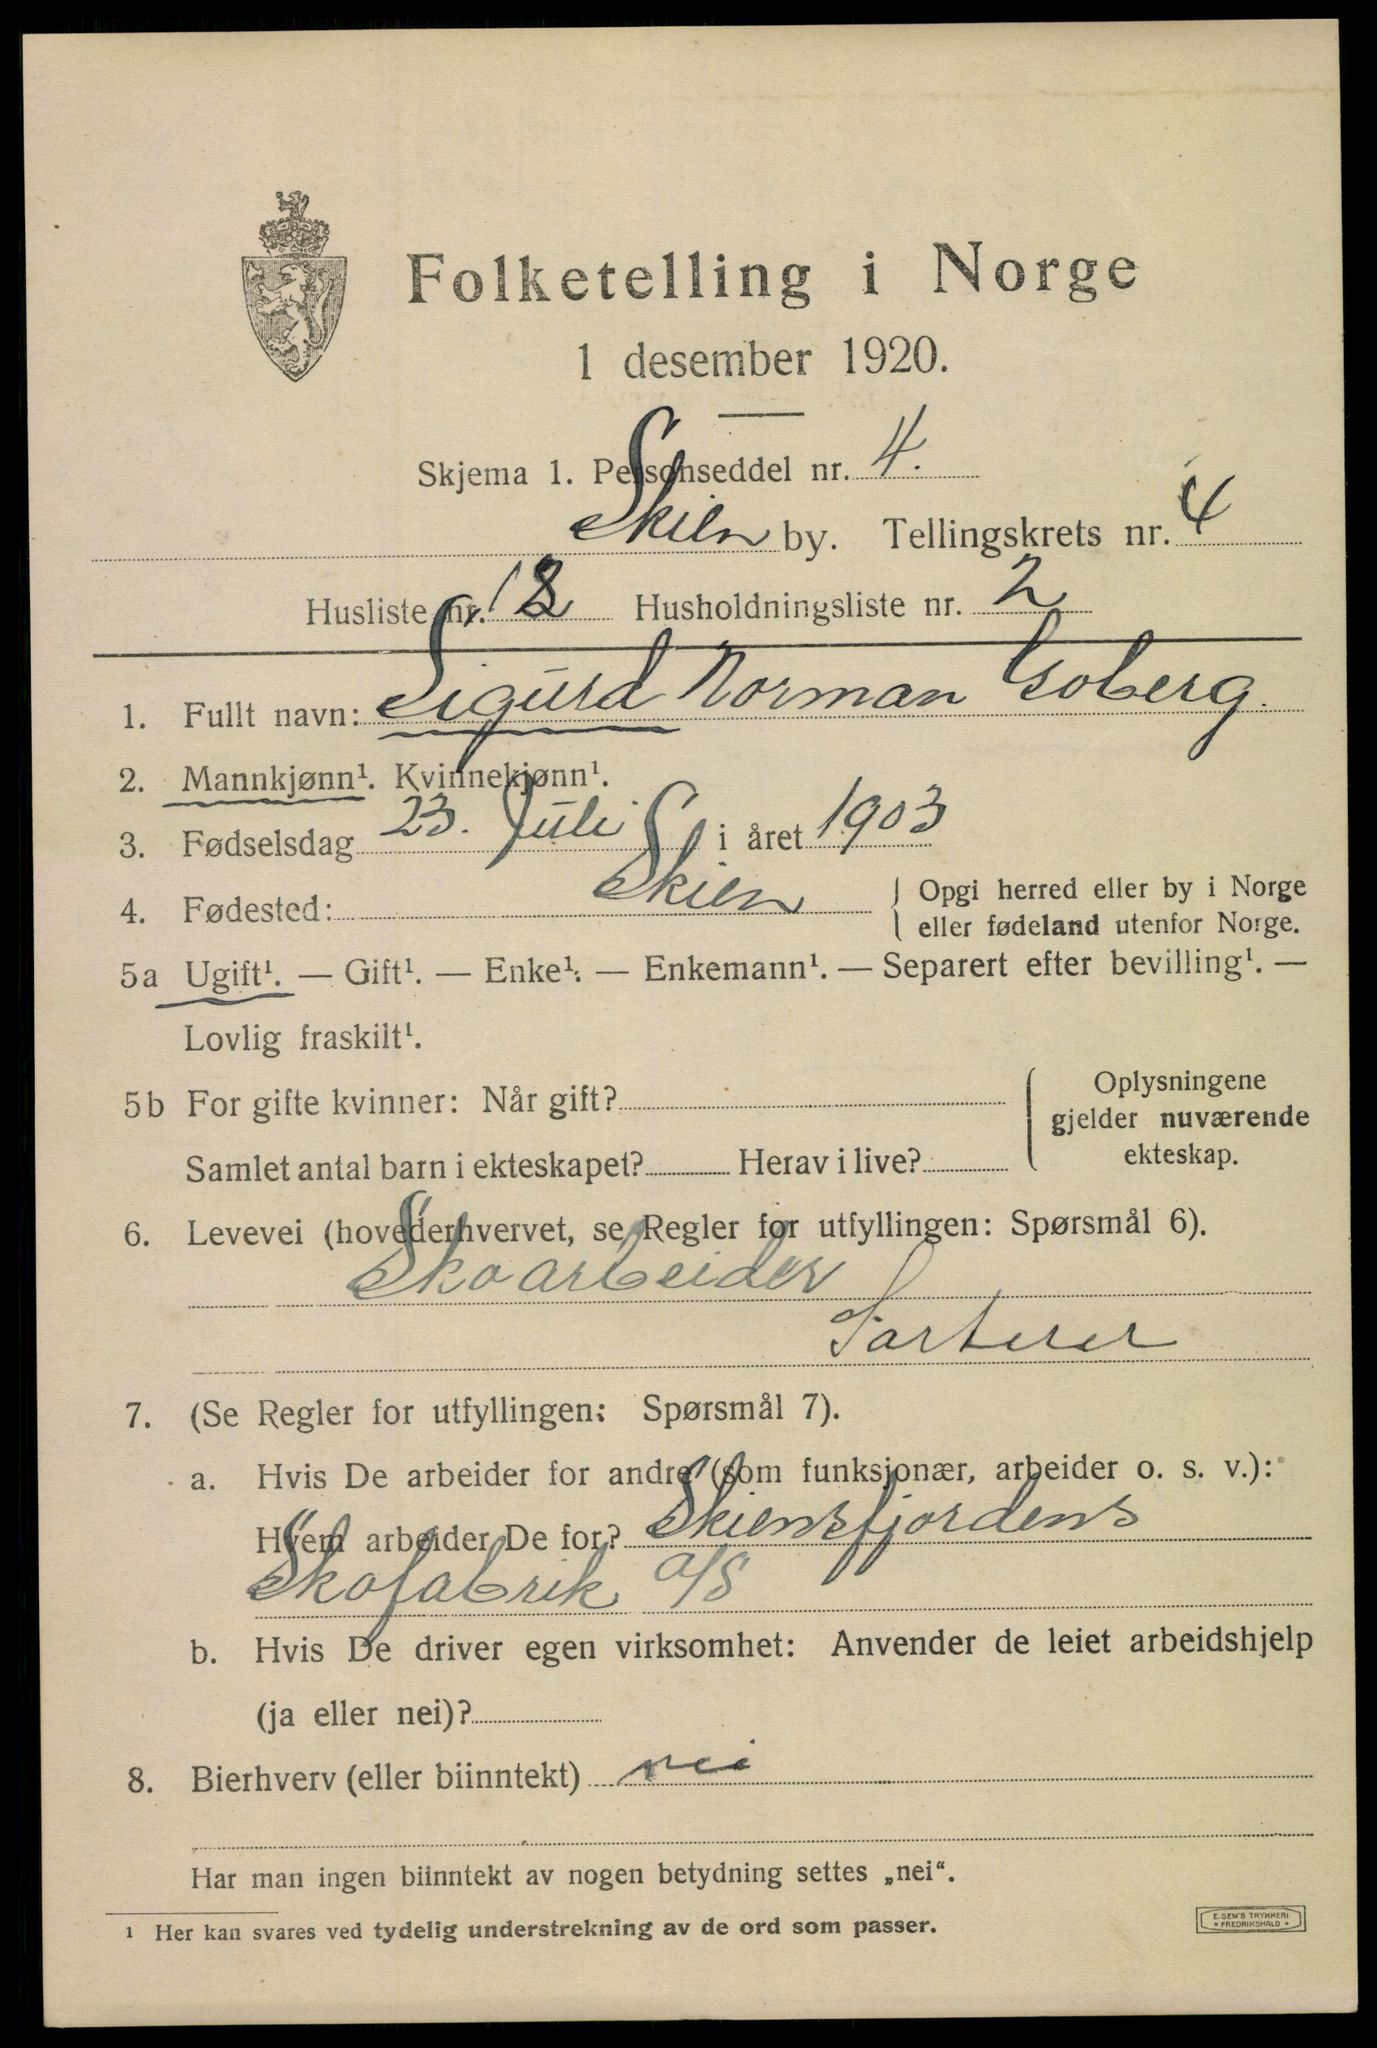 Folketelling i Norge
1 desember 1920.
Skjema 1. Personseddel nr. 4.
Skien by. Tellingskrets nr. 4
Husliste nr. 12 Husholdningsliste nr. 2
1. Fullt navn: Sigurd Norman Goberg.
2. Mannkjønn¹. Kvinnekjønn¹.
3. Fødselsdag 23. Juli i året 1903
4. Fødested: Skien { Opgi herred eller by i Norge
eller fødeland utenfor Norge.
5a Ugift¹. — Gift¹. — Enke¹. — Enkemann¹. — Separert efter bevilling¹. —
Lovlig fraskilt¹.
5b For gifte kvinner: Når gift? { Oplysningene
gjelder nuværende
Samlet antal barn i ekteskapet? Herav i live? ekteskap.
6. Levevei (hovederhvervet, se Regler for utfyllingen: Spørsmål 6).
Skoarbeider
Sorterer
7. (Se Regler for utfyllingen: Spørsmål 7).
a. Hvis De arbeider for andre (som funksjonær, arbeider o. s. v.):
Hvem arbeider De for? Skiensfjordens
Skofabrik a/s
b. Hvis De driver egen virksomhet: Anvender de leiet arbeidshjelp
(ja eller nei)?
8. Bierhverv (eller biinntekt) nei
Har man ingen biinntekt av nogen betydning settes „nei“.
1 Her kan svares ved tydelig understrekning av de ord som passer.
E. SEM'S TRYKKERI
* FREDRIKSHALD *